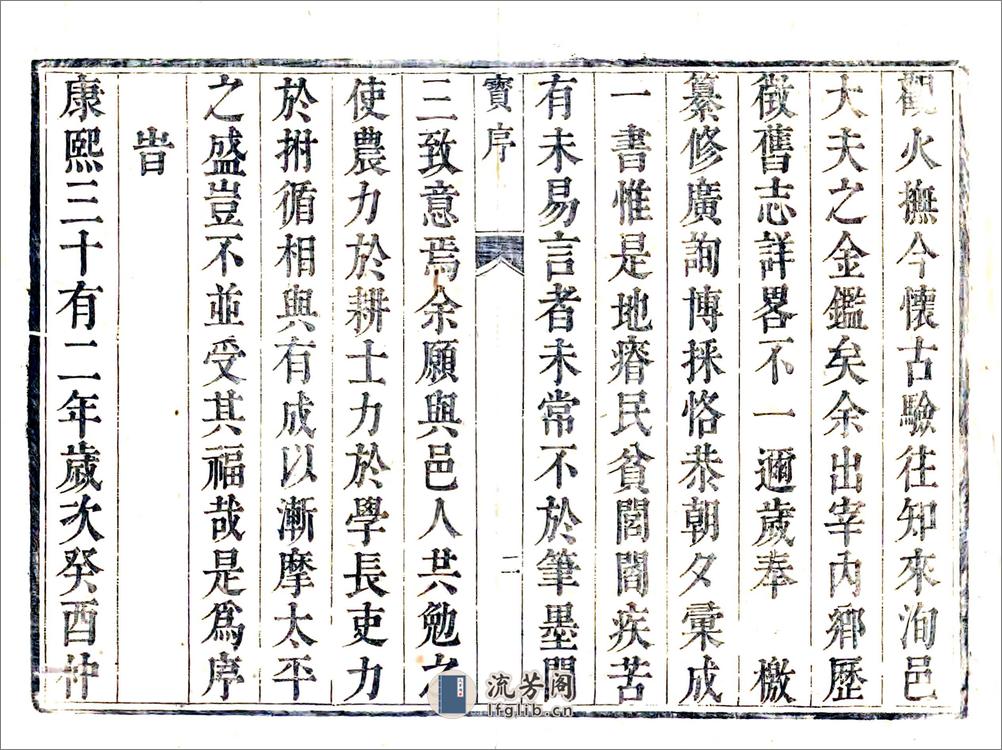 觀火撫今懷古驗往知來洵邑
大夫之金鑑矣余出宰內鄉歷
徵舊志詳畧不一邇歲奉　檄
纂修廣詢博採恪恭朝夕彙成
一書惟是地瘠民貧閭閻疾苦
有未易言者未常不於筆墨間
寶序　二
三致意焉余願與邑人共勉之
使農力於耕士力於學長吏力
於拊循相與有成以漸摩太平
之盛豈不並受其福哉是爲序
旹
康熙三十有二年歲次癸酉仲
流芳阁
lfglib.cn